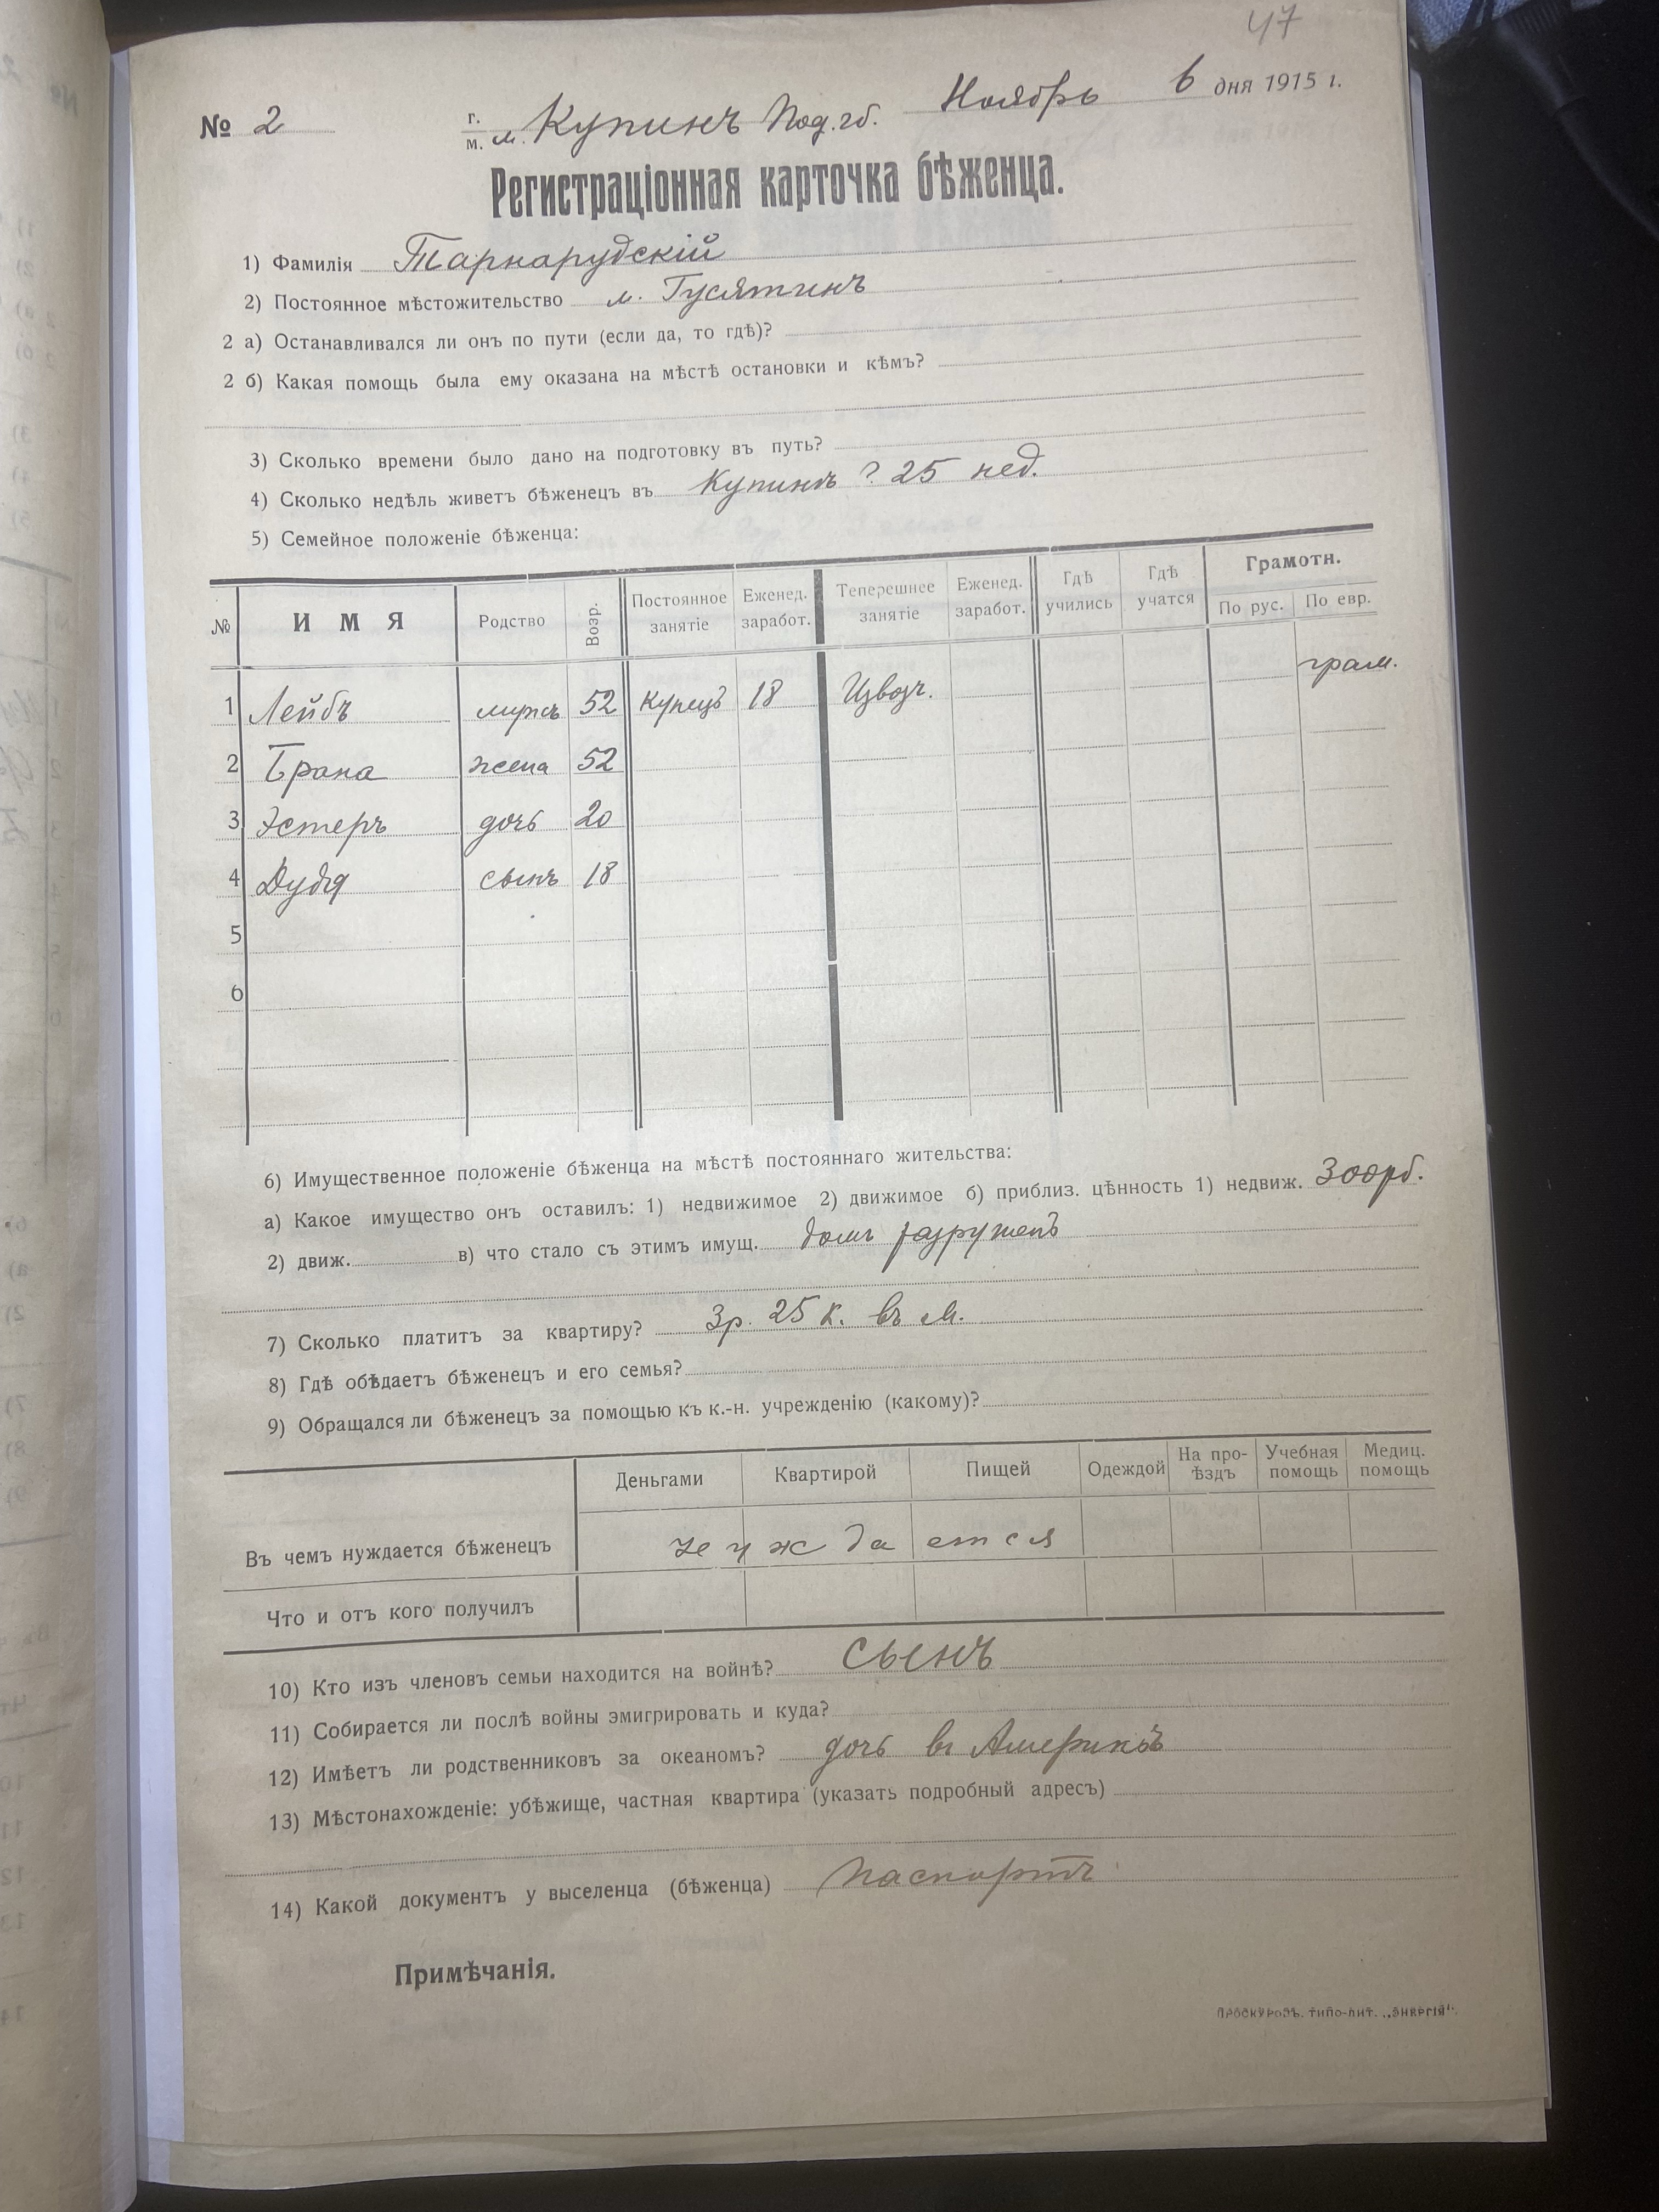 47
№ 2 г. м. м. Купинъ Под. гб. Ноябрь 6 дня 1915 г.
Регистраціонная карточка бѣженца.
1) Фамилія Тарнарудскій
2) Постоянное мѣстожительство м. Гусятинъ
2 а) Останавливался ли онъ по пути (если да, то гдѣ)?
2 б) Какая помощь была ему оказана на мѣстѣ остановки и кѣмъ?
3) Сколько времени было дано на подготовку въ путь?
4) Сколько недѣль живетъ бѣженецъ въ Купинѣ ? 25 нед.
5) Семейное положеніе бѣженца:
№ ИМЯ Родство Возр. Постоянное занятіе Еженед. заработ. Теперешнее занятіе Еженед. заработ. Гдѣ учились Гдѣ учатся Грамотн. По рус. По евр.
1 Лейбъ мужъ 52 Купецъ 18 Извозч. грам.
2 Брана жена 52
3 Эстеръ дочь 20
4 сынъ 18
5
6
6) Имущественное положеніе бѣженца на мѣстѣ постояннаго жительства:
а) Какое имущество онъ оставилъ: 1) недвижимое 2) движимое б) приблиз. цѣнность 1) недвиж. 300рб.
2) движ. в) что стало съ этимъ имущ. домъ разрушенъ
7) Сколько платитъ за квартиру? 3р. 25 к. въ м.
8) Гдѣ обѣдаетъ бѣженецъ и его семья?
9) Обращался ли бѣженецъ за помощью къ к.-н. учрежденію (какому)?
Деньгами Квартирой Пищей Одеждой На про-ѣздъ Учебная помощь Медиц. помощь
Въ чемъ нуждается бѣженецъ не нуждается
Что и отъ кого получилъ
10) Кто изъ членовъ семьи находится на войнѣ? сынъ
11) Собирается ли послѣ войны эмигрировать и куда?
12) Имѣетъ ли родственниковъ за океаномъ? дочь въ Америкѣ
13) Мѣстонахожденіе: убѣжище, частная квартира (указать подробный адресъ)
14) Какой документъ у выселенца (бѣженца) паспортъ
Примѣчанія.
ПРОСКУРОВЪ. ТИПО-ЛИТ. „ЭНЕРГІЯ".